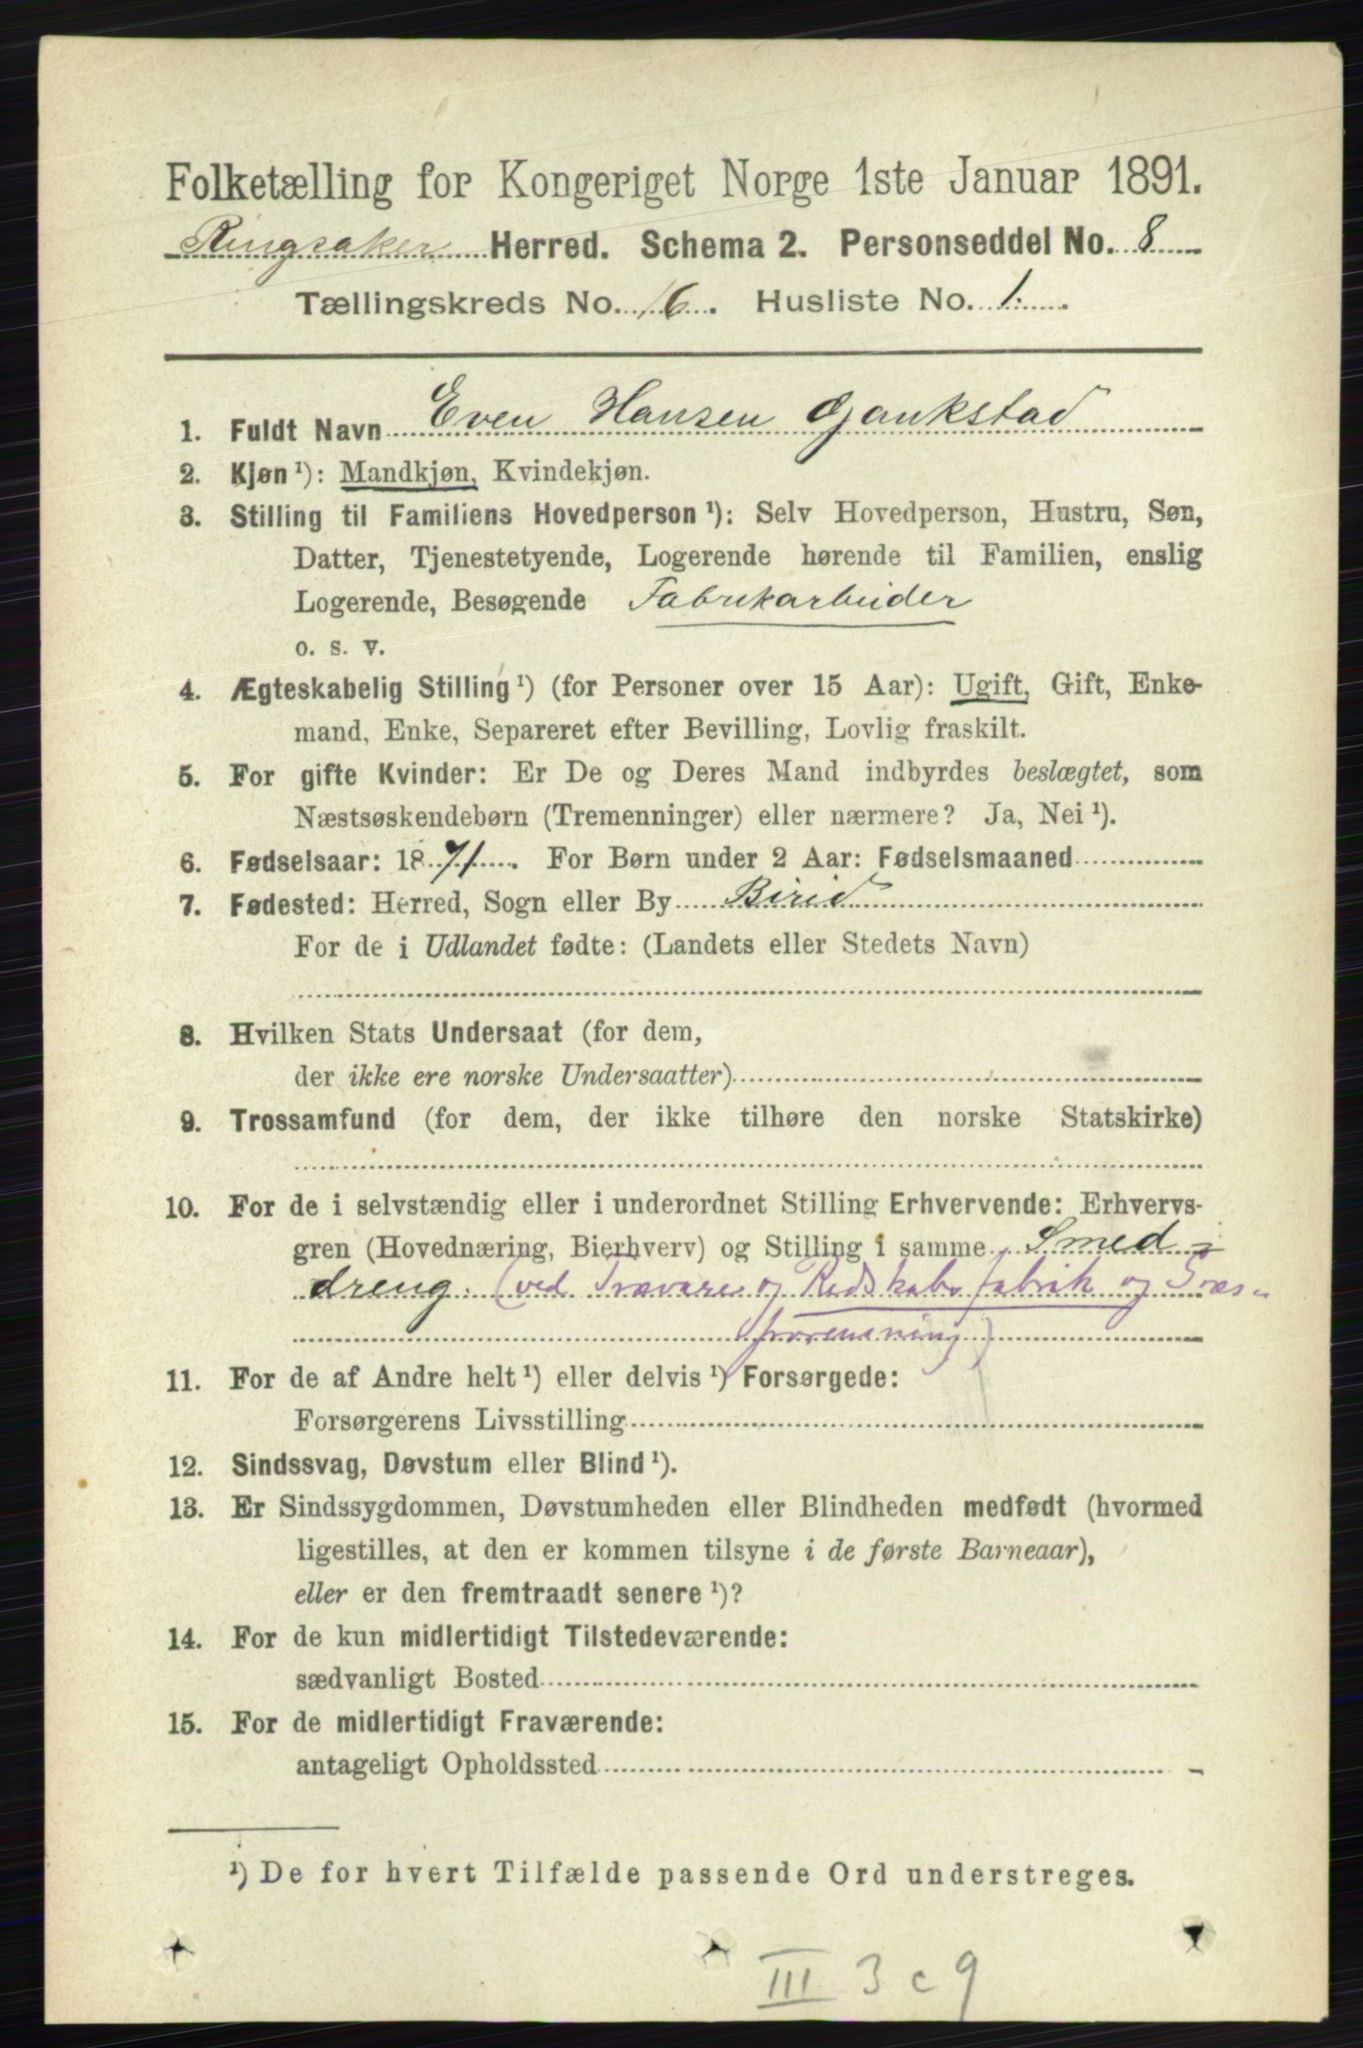 Folketælling for Kongeriget Norge 1ste Januar 1891.
Ringsaker Herred. Schema 2. Personseddel No. 8
Tællingskreds No. 16. Husliste No. 1.
1. Fuldt Navn Even Hansen Gjaukstad
2. Kjøn ¹): Mandkjøn, Kvindekjøn.
3. Stilling til Familiens Hovedperson ¹): Selv Hovedperson, Hustru, Søn,
Datter, Tjenestetyende, Logerende hørende til Familien, enslig
Logerende, Besøgende Fabrikarbeider
o. s. v.
4. Ægteskabelig Stilling ¹) (for Personer over 15 Aar): Ugift, Gift, Enke-
mand, Enke, Separeret efter Bevilling, Lovlig fraskilt.
5. For gifte Kvinder: Er De og Deres Mand indbyrdes beslægtet, som
Næstsøskendebørn (Tremenninger) eller nærmere? Ja, Nei ¹).
6. Fødselsaar: 1871. For Børn under 2 Aar: Fødselsmaaned
7. Fødested: Herred, Sogn eller By Birid
For de i Udlandet fødte: (Landets eller Stedets Navn)
8. Hvilken Stats Undersaat (for dem,
der ikke ere norske Undersaatter)
9. Trossamfund (for dem, der ikke tilhøre den norske Statskirke)
10. For de i selvstændig eller i underordnet Stilling Erhvervende: Erhvervs-
gren (Hovednæring, Bierhverv) og Stilling i samme Smed-
dreng. (ved Trævare og Redskabsfabrik og
11. For de af Andre helt ¹) eller delvis ¹) Forsørgede:
Forsørgerens Livsstilling
12. Sindssvag, Døvstum eller Blind ¹).
13. Er Sindssygdommen, Døvstumheden eller Blindheden medfødt (hvormed
ligestilles, at den er kommen tilsyne i de første Barneaar),
eller er den fremtraadt senere ¹)?
14. For de kun midlertidigt Tilstedeværende:
sædvanligt Bosted
15. For de midlertidigt Fraværende:
antageligt Opholdssted
¹) De for hvert Tilfælde passende Ord understreges.
III 3 c 9